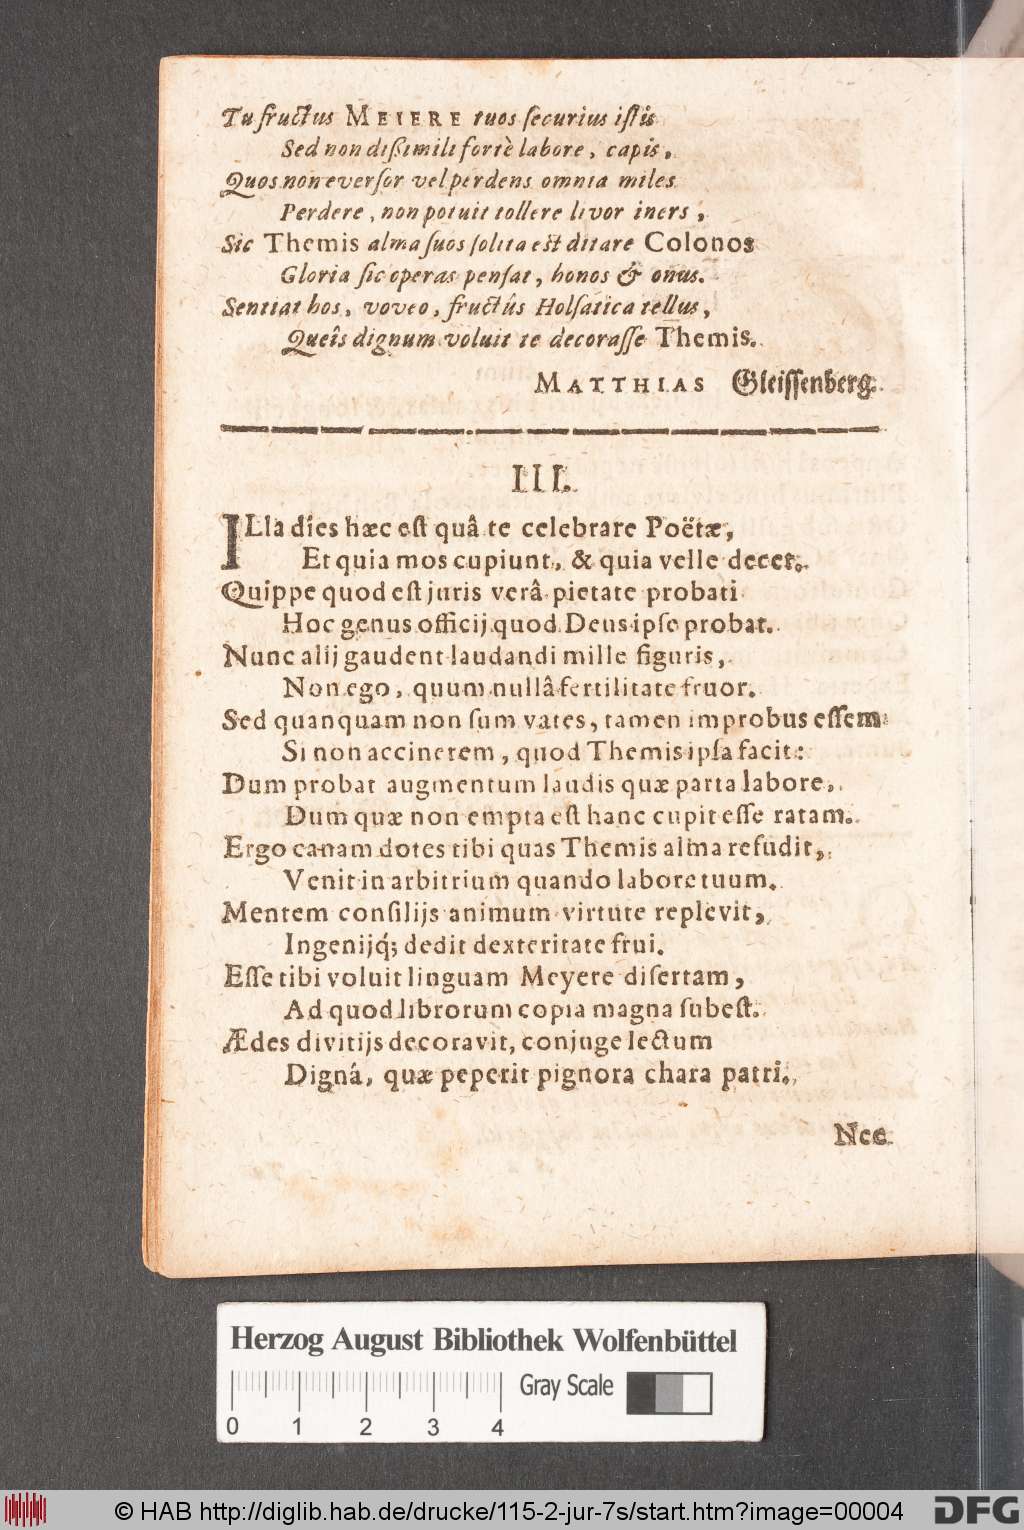 Tu fructus MEIERE tuos ſecurius iſtis
Sed non dißimili fortè labore, capis,
Quos non everſor vel perdens omnia miles
Perdere, non potuit tollere livor iners,
Sic Themis alma ſuos ſolita est ditare Colonos
Gloria ſic operas penſat, honos & onus.
Sentiat hos, voveo, fructûs Holſatica tellus,
Queîs dignum voluit te decoraſſe Themis.
MATTHIAS Gleiſſenberg.
III.
ILla dies hæc eſt quâ te celebrare Poëtæ,
Et quia mos cupiunt, & quia velle decet.
Quippe quod eſt juris verâ pietate probati
Hoc genus officij quod Deus ipſe probat.
Nunc alij gaudent laudandi mille figuris,
Non ego, quum nullâ fertilitate fruor.
Sed quanquam non ſum vates, tamen improbus eſſem
Si non accinerem, quod Themis ipſa facit:
Dum probat augmentum laudis quæ parta labore,
Dum quæ non empta eſt hanc cupit eſſe ratam.
Ergo canam dotes tibi quas Themis alma refudit,
Venit in arbitrium quando labore tuum.
Mentem conſilijs animum virtute replevit,
Ingenijq́; dedit dexteritate frui.
Eſſe tibi voluit linguam Meyere diſertam,
Ad quod librorum copia magna ſubeſt.
Ædes divitijs decoravit, conjuge lectum
Digná, quæ peperit pignora chara patri.
Nec
Herzog August Bibliothek Wolfenbüttel
Gray Scale
0 1 2 3 4
© HAB http://diglib.hab.de/drucke/115-2-jur-7s/start.htm?image=00004
DFG